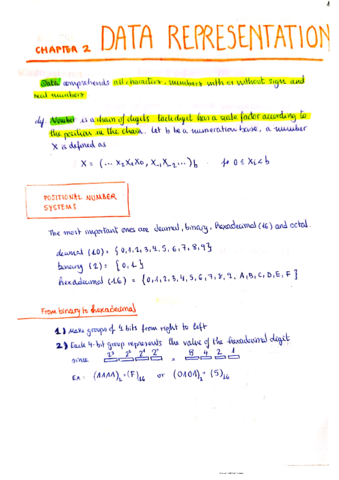 1
CHAPTER 2 DATA REPRESENTATION
Data comprehends all characters, numbers with or without sign and
real numbers
df. Number is a chain of digits. Each digit has a scale factor according to
the position in the chain. Let b be a numeration base, a number
X is defined as
X = (... X₂X₁X₀, X₋₁X₋₂ ...)b for 0 ≤ Xi < b
POSITIONAL NUMBER
SYSTEMS
The most important ones are decimal, binary, hexadecimal (16) and octal.
decimal (10) = {0,1,2,3,4,5,6,7,8,9}
binary (2) = {0,1}
hexadecimal (16) = {0,1,2,3,4,5,6,7,8,9,A,B,C,D,E,F}
From binary to hexadecimal
1) Make groups of 4 bits from right to left
2) Each 4-bit group represents the value of the hexadecimal digit
since 2³ 2² 2¹ 2⁰ = 8 4 2 1
Ex: (1111)₂ = (F)₁₆ or (0101)₂ = (5)₁₆